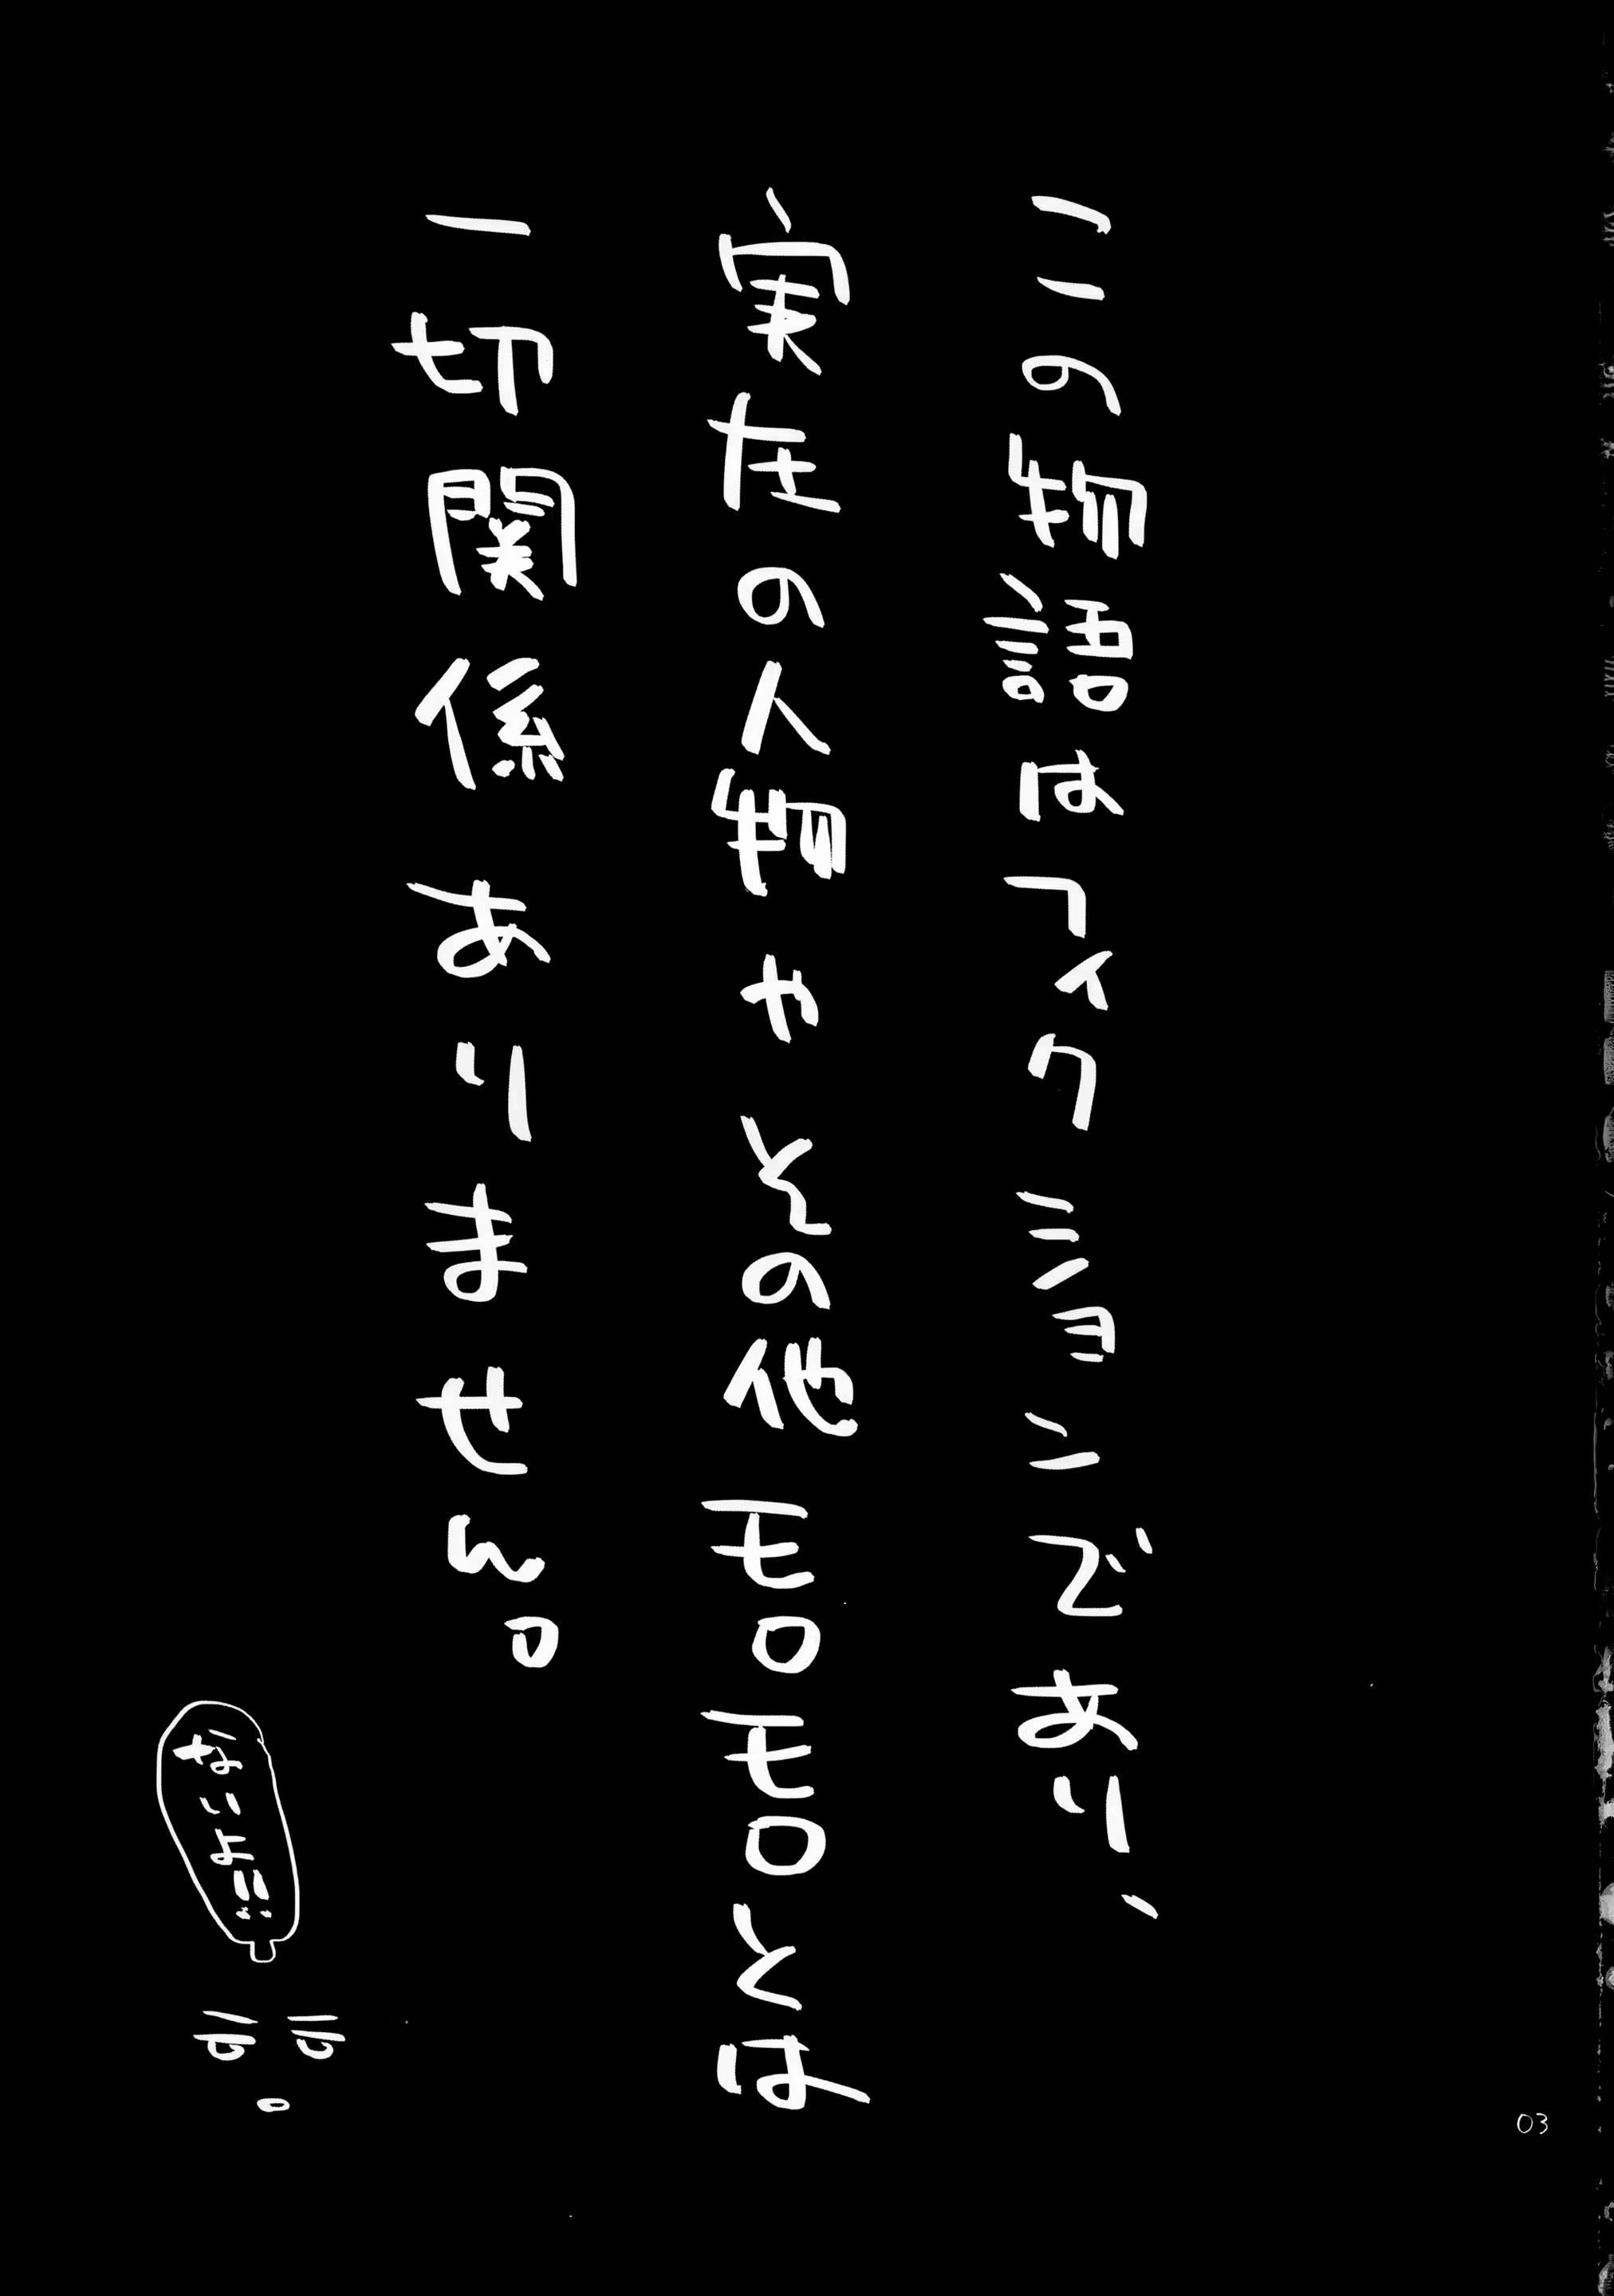 この物語はフィクションであり、
実在の人物やその他モロモロとは
一切関係ありません。
03